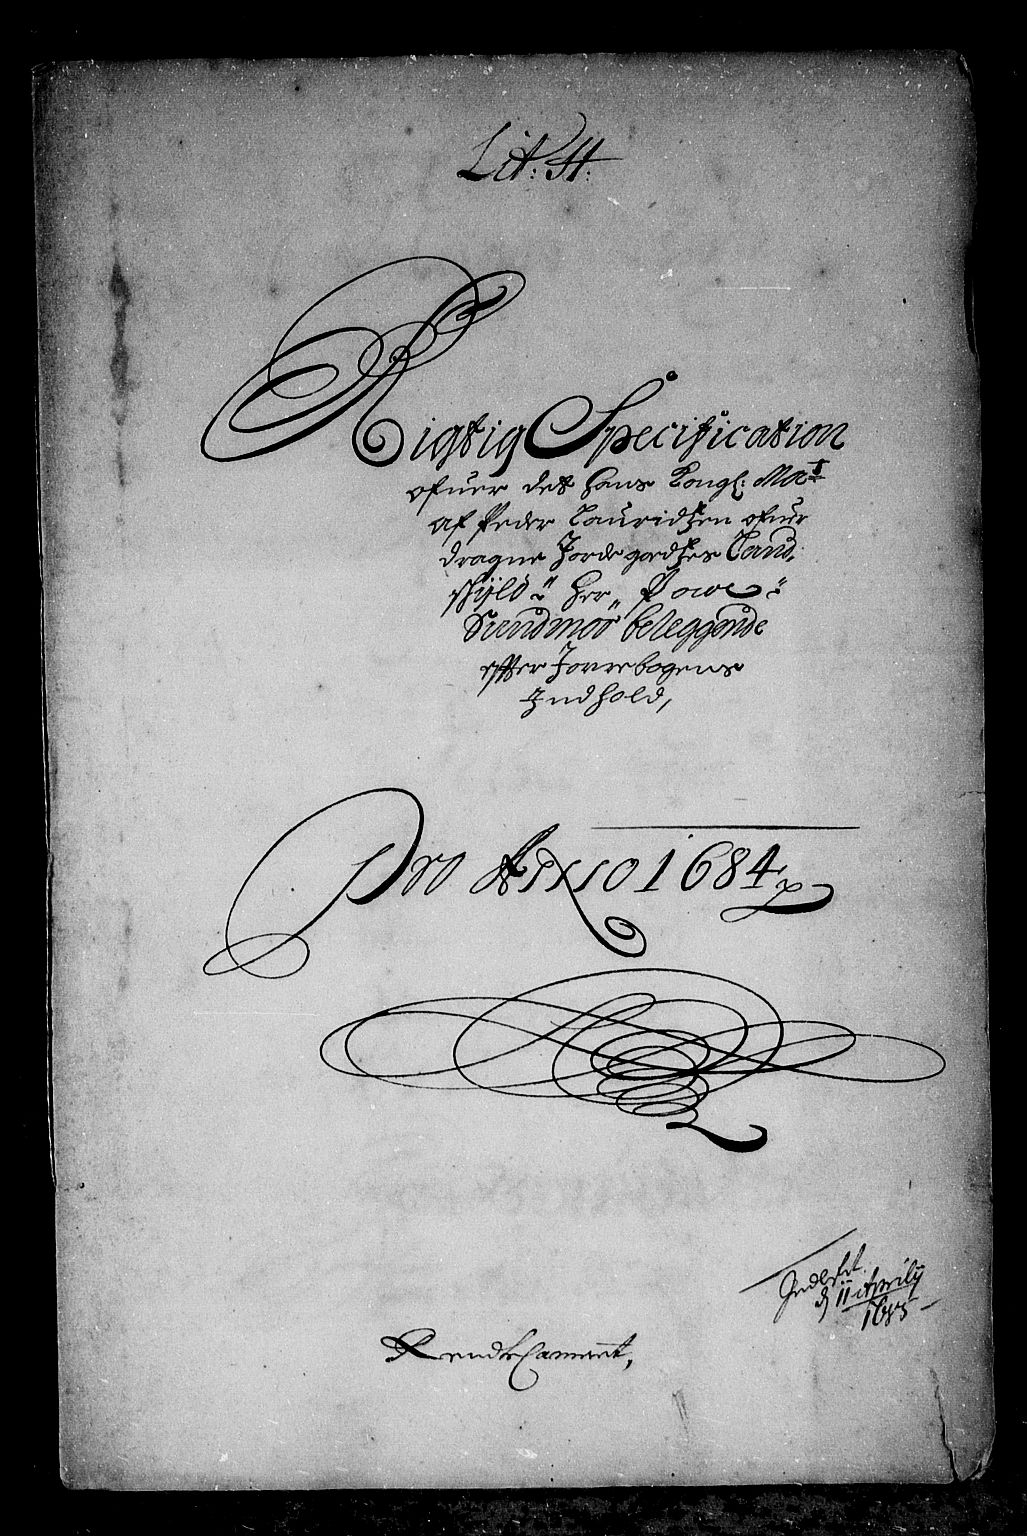 Lit: H:
Rigtig Specification
ofuer det hans Kongl: Maÿt
af Peder Lauridtzen ofuer
dragne Jorde godtzes Land,,
schÿld :
Sundmør beleggende
effter Jorrebogens
Indhold,
Pro Anno 1684
Indlefret
d 11 Aprily
1685
Rendte Cammeret,